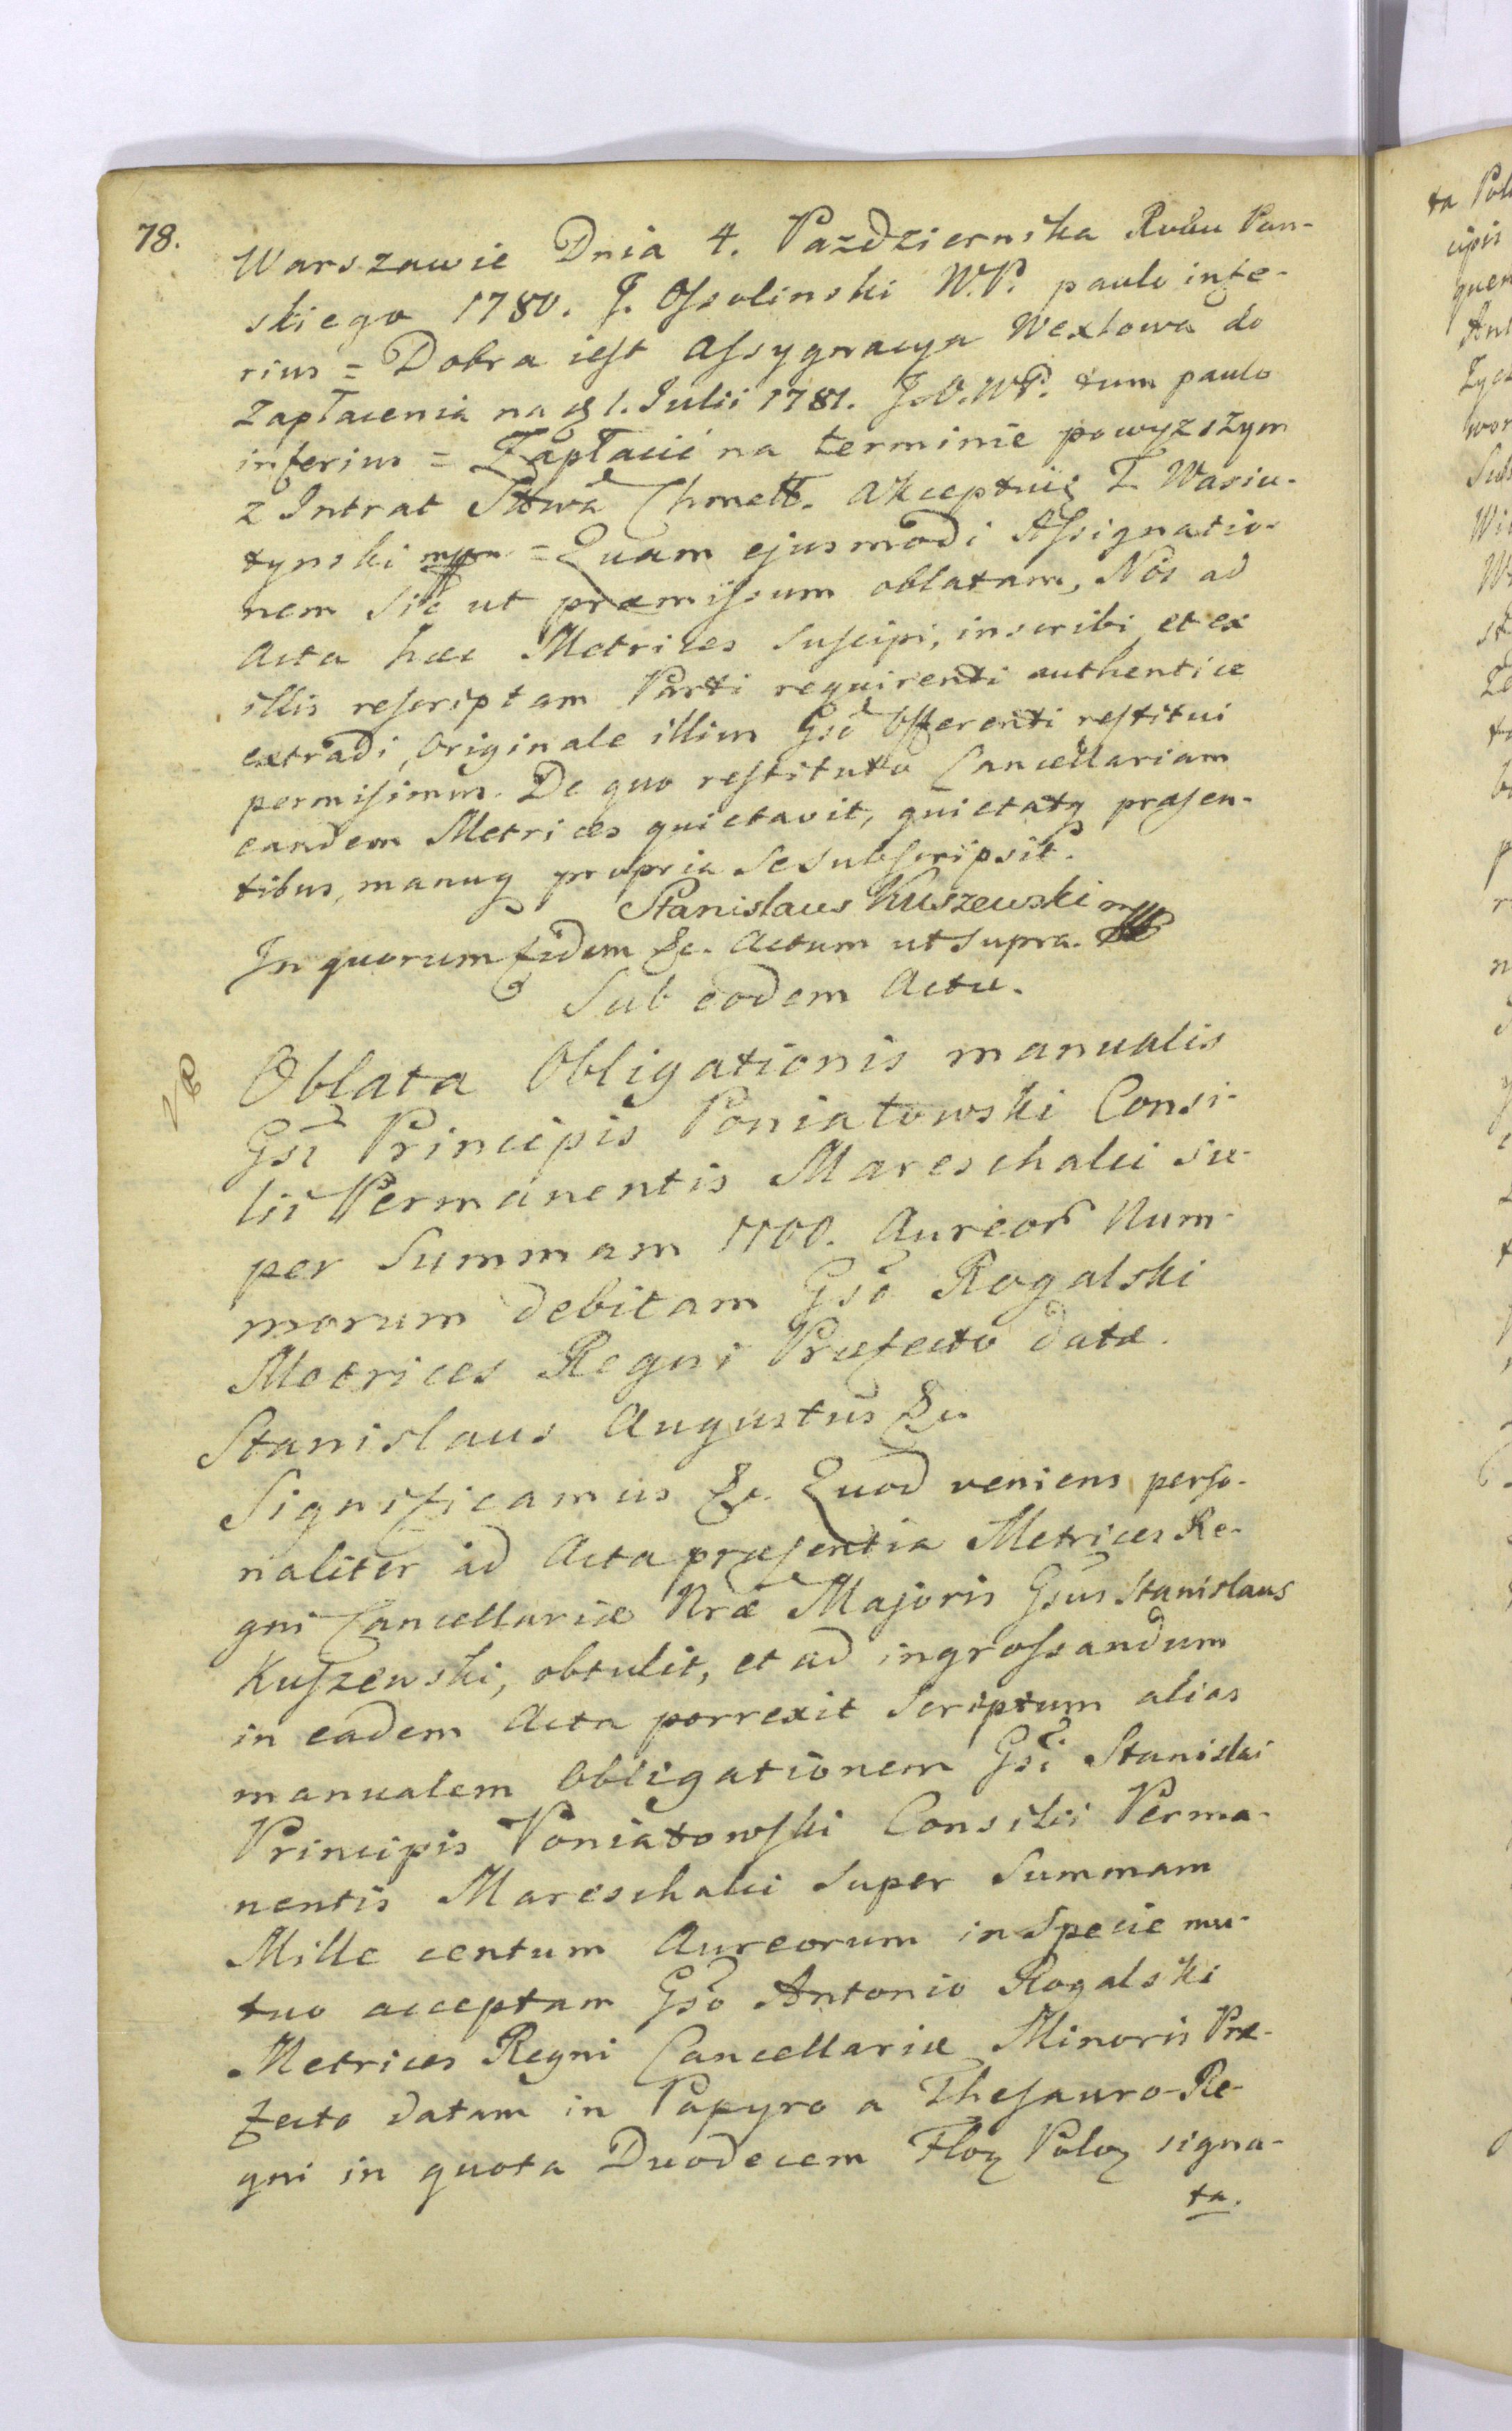 78.
Warszawie Dnia 4. Pazdziernika Roku Pan-
skiego 1780. J. Ossolinski W.P. paulo infe-
rius = Dobra iest Assygnacya Wexlowa do
Zapłacenia na d 1. Julii 1781. J.O.W.P. tum paulo
inferius = Zapłacić na terminie powyzszym
z Intrat Sttwa Chmell. Akceptuię T. Wasiu-
tynski mpp = Quam ejusmodi Assignatio-
nem sic ut præmissum oblatam, Nos ad
Acta hæc Metrices suscipi, inscribi et ex
illis rescriptam Parti requirenti authentice
extradi, Originale illius Gso Offerenti restitui
permisimus. De quo restituto Cancellariam
eandem Metrices quietavit, quietatq præsen-
tibus, manuq propria se subscripsit.
Stanislaus Kuszewski mpp
In quorum fidem &c. Actum ut supra.
Sub eodem Actu.
Oblata Obligationis manualis
Gsi Principis Poniatowski Consi-
lii Permanentis Mareschalci su-
per Summam 1100. Aureor Num-
morum debitam Gso Rogalski
Metrices Regni Præfecto datæ.
Stanislaus Augustus &c.
Significamus &c. Quod veniens perso-
naliter ad Acta præsentia Metrices Re-
gni Cancellariæ Nræ Majoris Gsus Stanislaus
Kuszewski, obtulit, et ad ingrossandum
in eadem Acta porrexit Scriptum alias
manualem Obligationem Gsi Stanislai
Principis Poniatowski Consilii Perma-
nentis Mareschalci super Summam
Mille centum Aureorum in Specie mu-
tuo acceptam Gso Antonio Rogalski
Metrices Regni Cancellariæ Minoris Præ-
fecto datam in Papyro a Thesauro Re-
gni in quota Duodecem Floꝝ Poloꝝ signa-
ta.